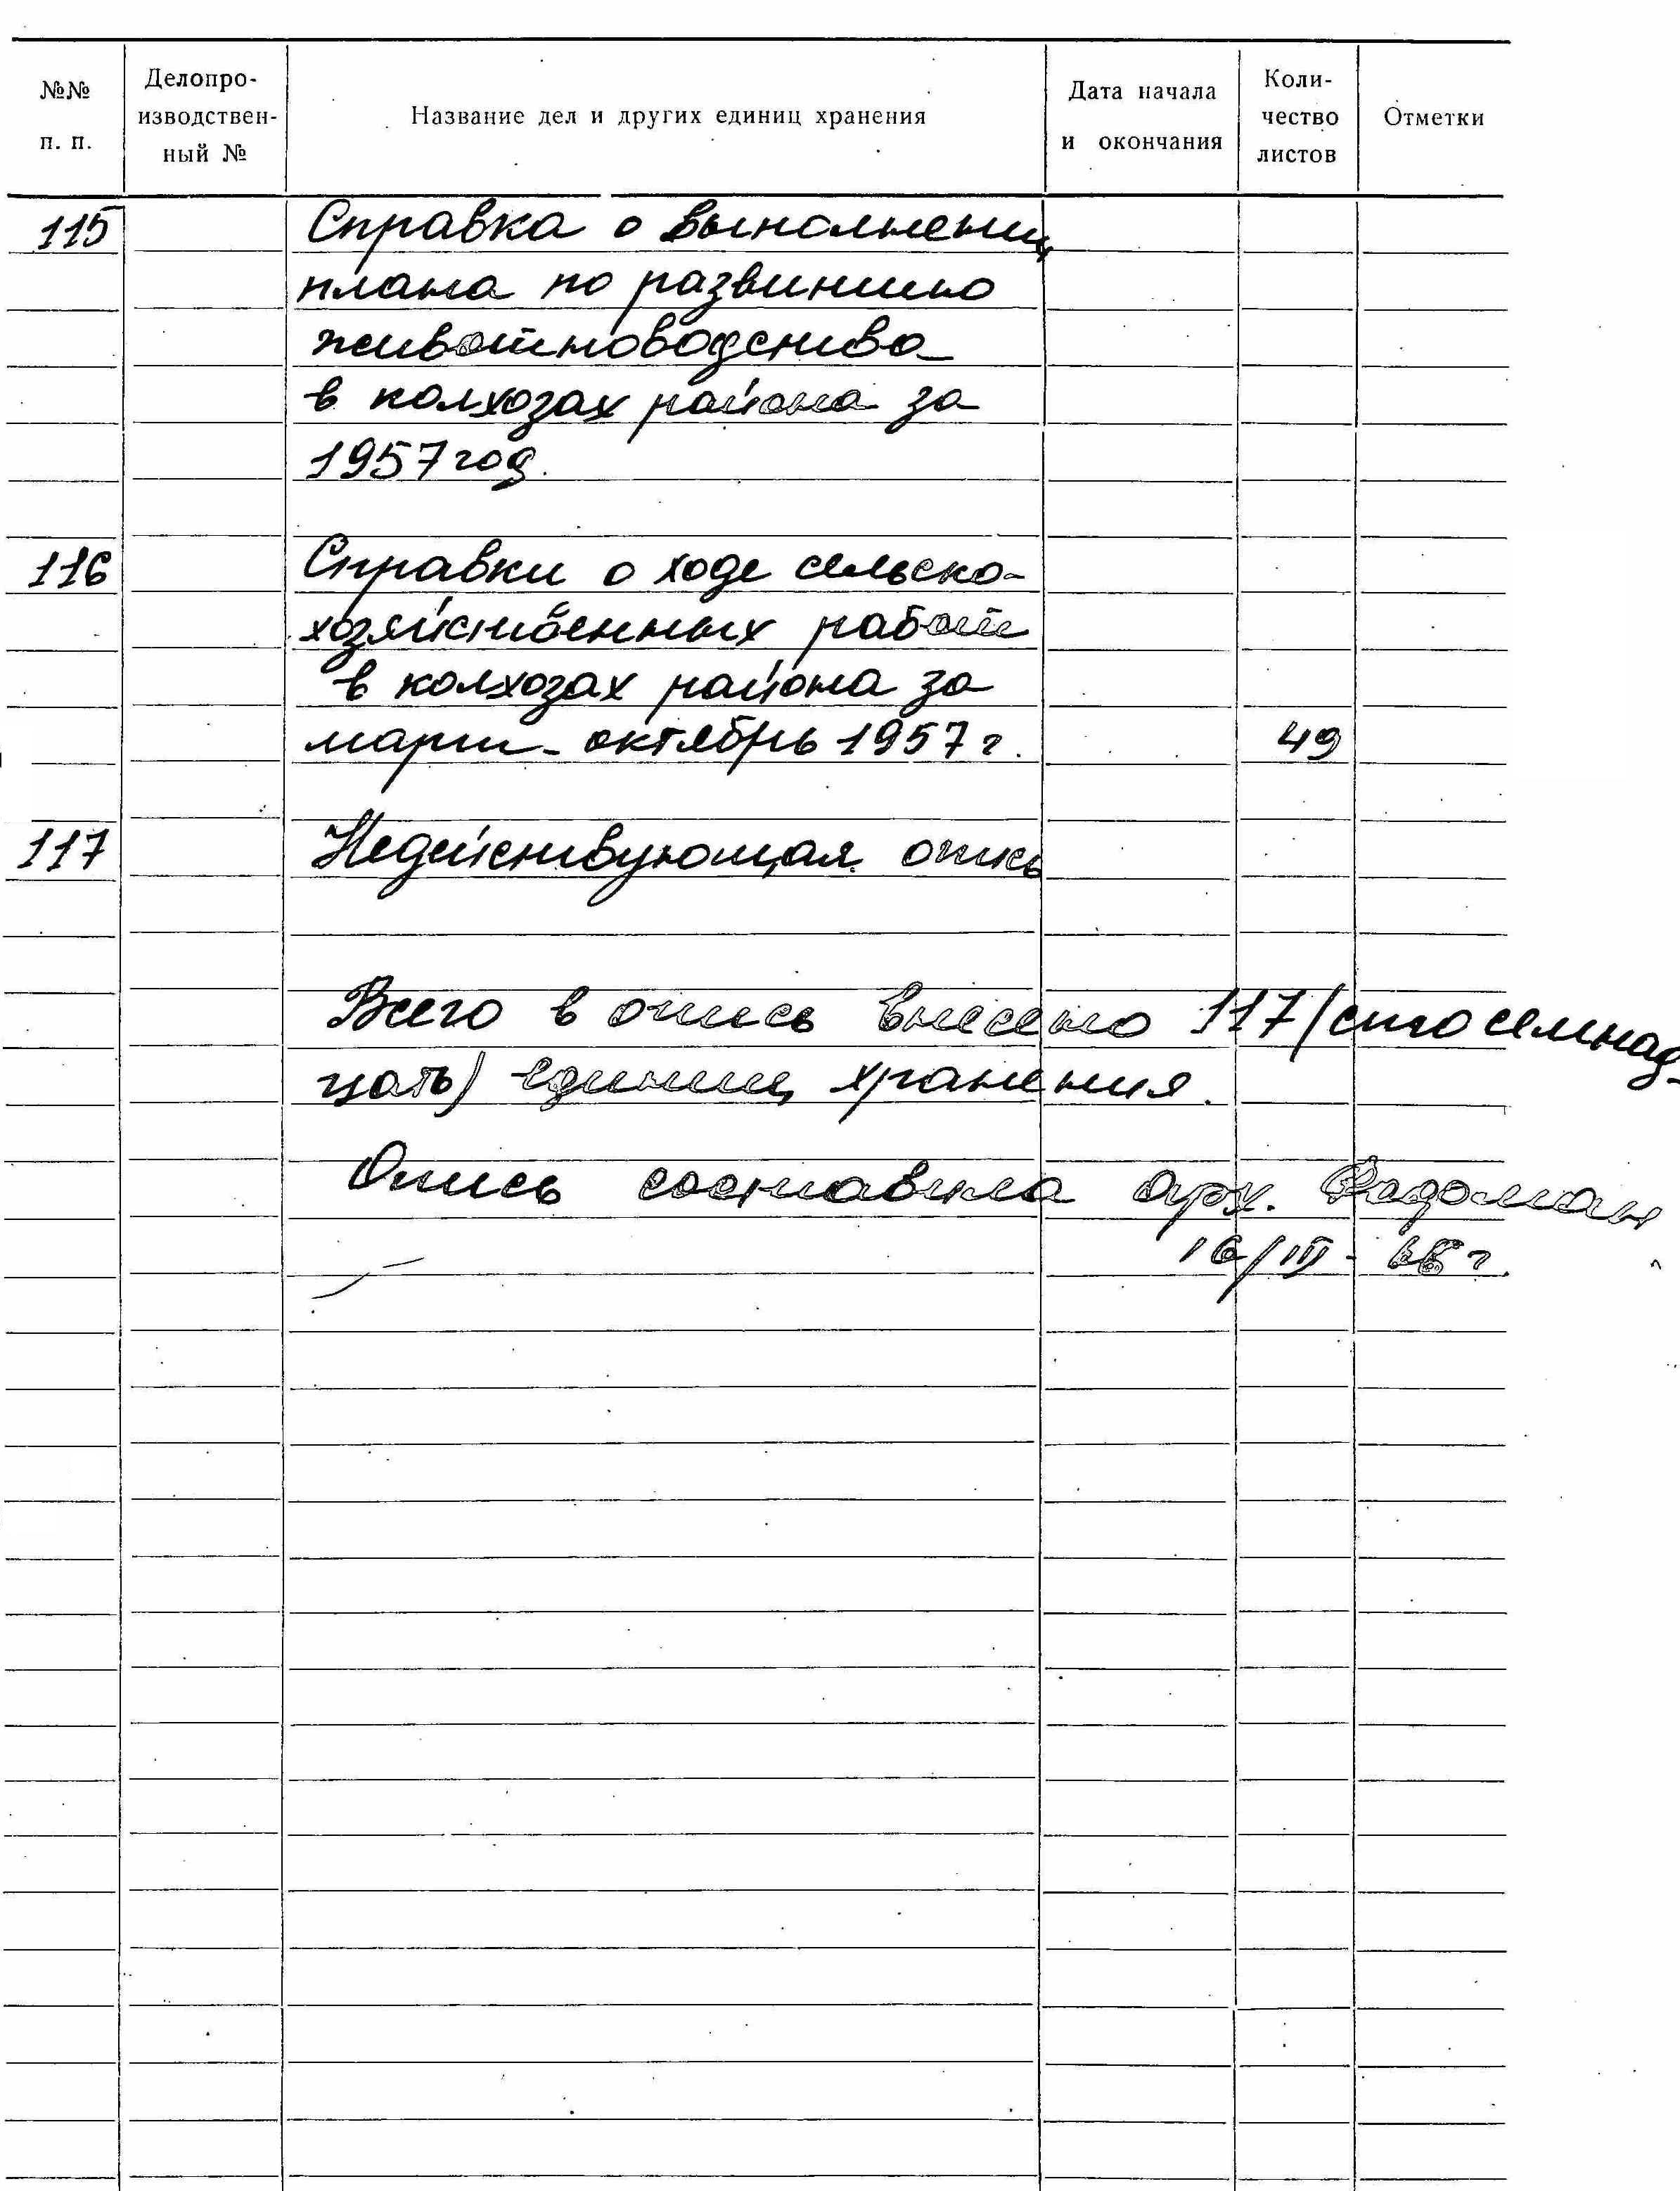 №№ п. п.
Делопро-
изводствен-
ный №
Название дел и других единиц хранения
Дата начала
и окончания
Коли-
чество
листов
Отметки
115 Справка о выполнении
плана по развитию
животноводства
в колхозах района за
1957 год.
116 Справки о ходе сельско-
хозяйственных работ
в колхозах района за
март - октябрь 1957 г. 49
117 Недействующая опись
Всего в опись внесено 117 (сто семнад-
цать) единиц хранения.
Опись составила арх.
16/III -